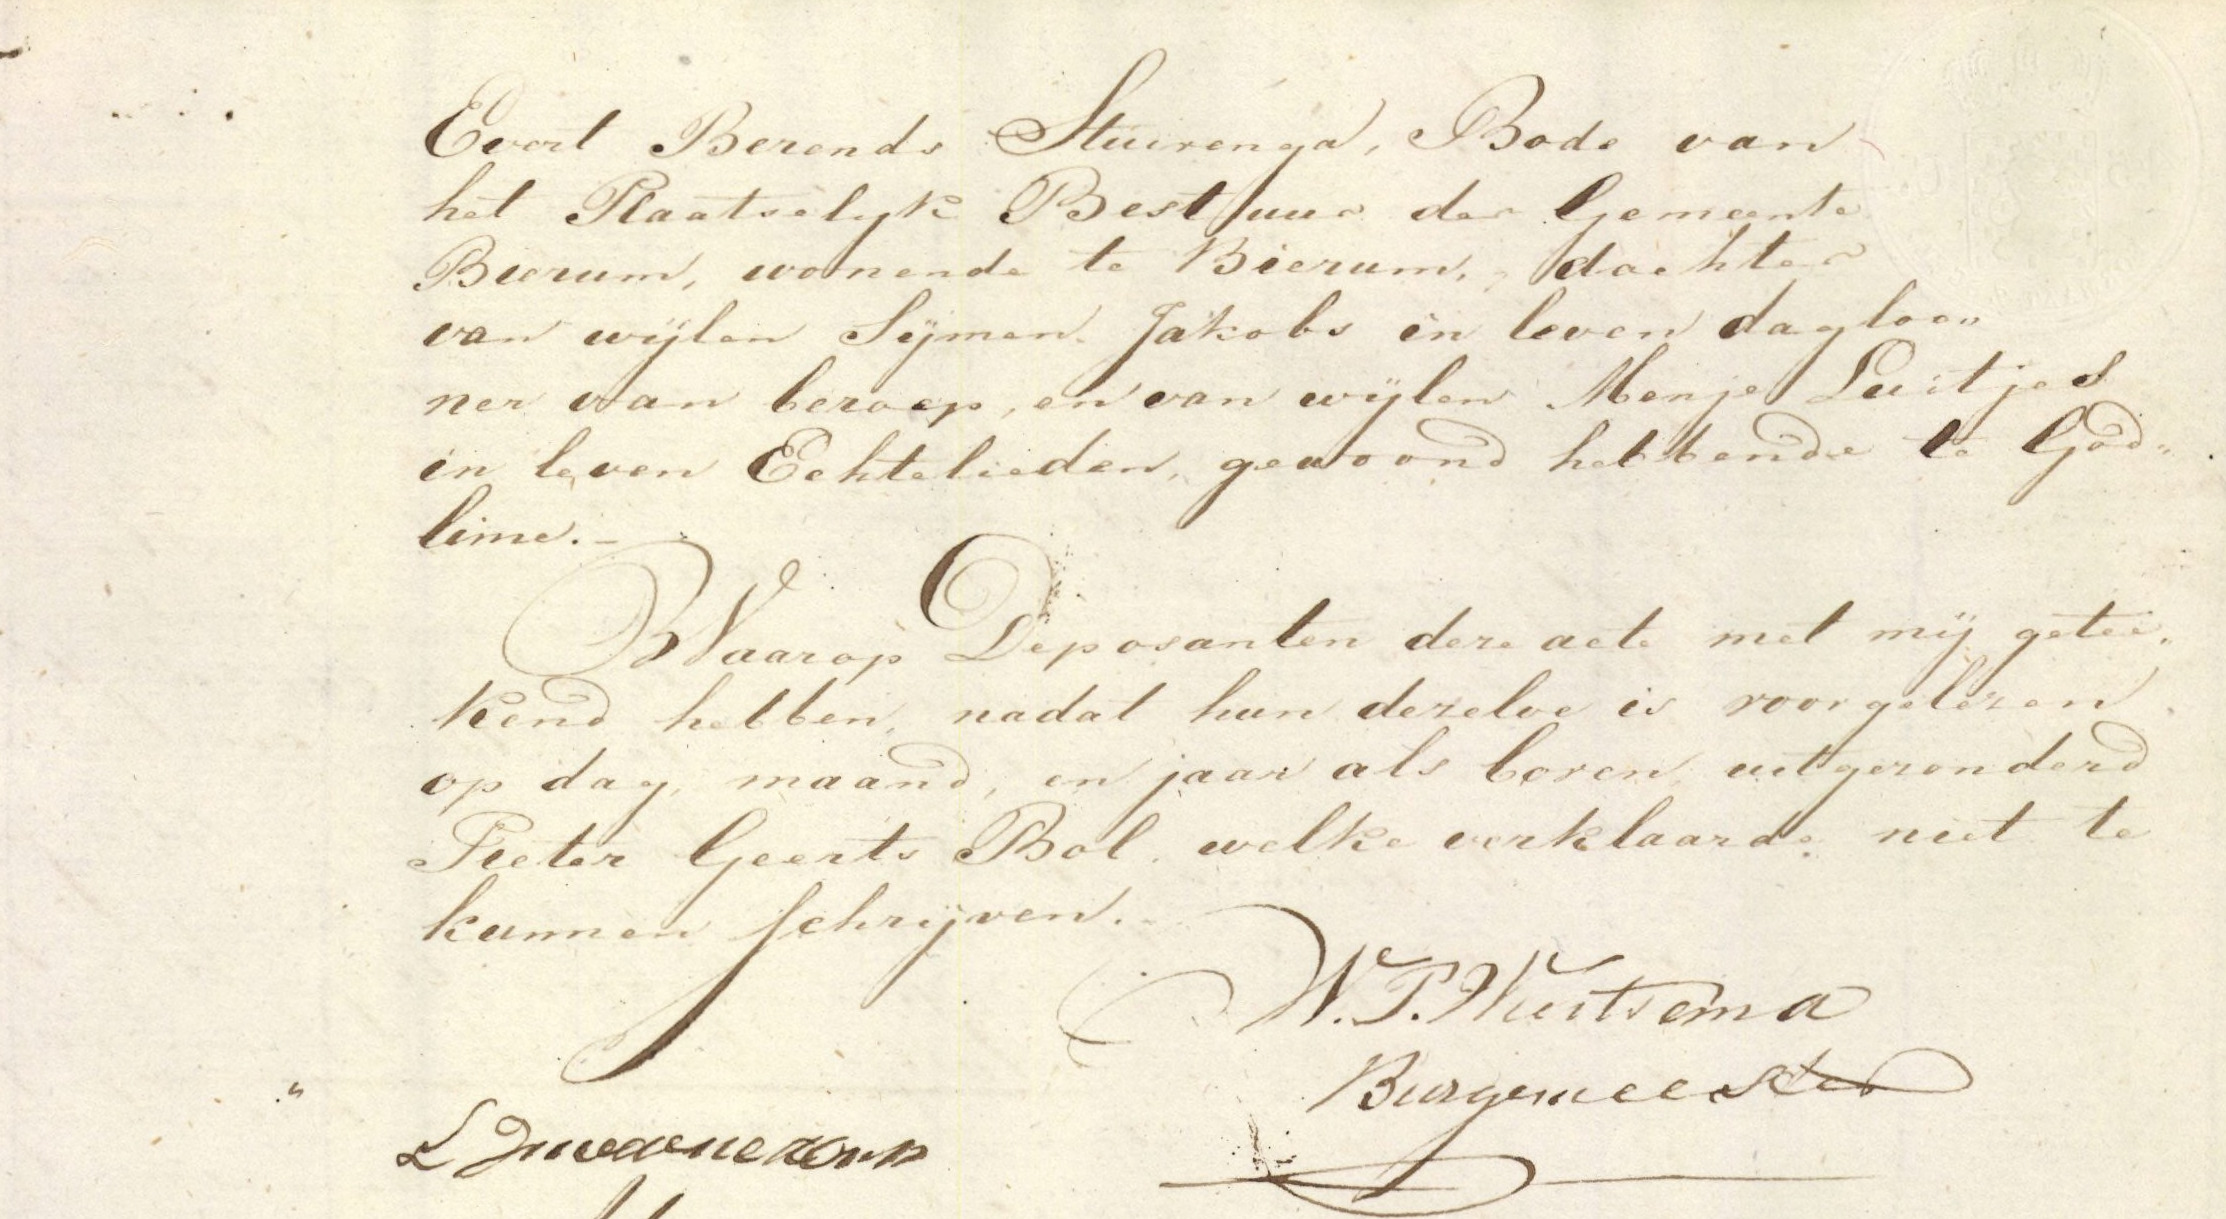 Evert Berends Stuirenga, Bode van
het Plaatselyk Bestuur der Gemeente
Bierum, wonende te Bierum, dochter
van wijlen Sijmen Jakobs in leven dagloo„
ner van beroep, en van wijlen Menje Luitjes
in leven Echtelieden, gewoond hebbende te God„
linze.
Waarop Deposanten deze acte met mij getee„
kend hebben, nadat hun dezelve is voorgelezen
op dag, maand, en jaar als boven, uitgezonderd
Pieter Geerts Bol, welke verklaarde niet te
kunnen schrijven.
W. P. Wiertsema
Burgemeester
L